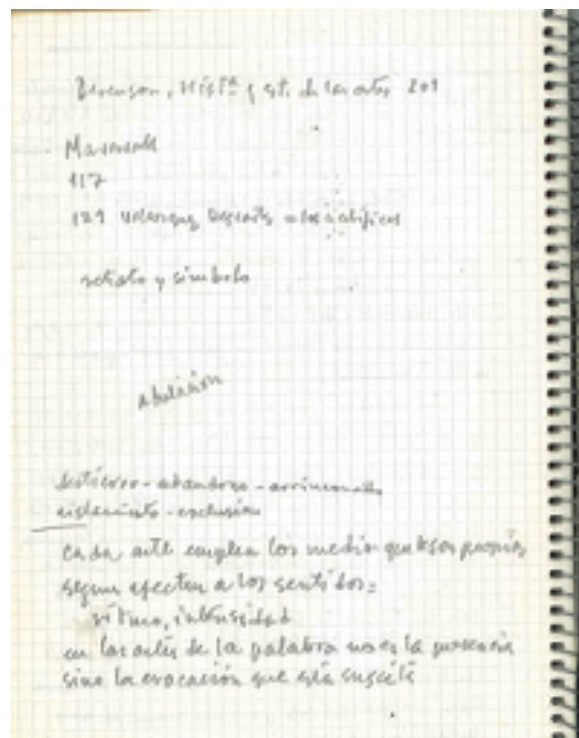 Berenson, Histª y et. de las artes 201
Maravall
117
129 Velázquez Descartes a los científicos
retrato y símbolo
abulición
destierro - abandono - arrinconado
aislamiento - exclusión
cada arte emplea los medios que le son propios
según afecten a los sentidos:
ritmo, intensidad
en las artes de la palabra no es la presencia
sino la evocación que ésta suscita